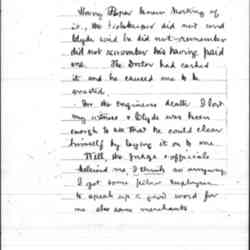 Harry Piper knew nothing of
it, the timekeeper did not and
Clyde said he did not remember
did not remember his having paid
me. The Doctor had cashed
it and he caused me to be
arrested.
For the Engineers death I lost
my witness & Clyde was keen
enough to see that he could clear
himself by laying it on to me.
With the Judge & officials
behind me, I think so anyway
I got some fellow employees
to speak up a good word for
me also some merchants